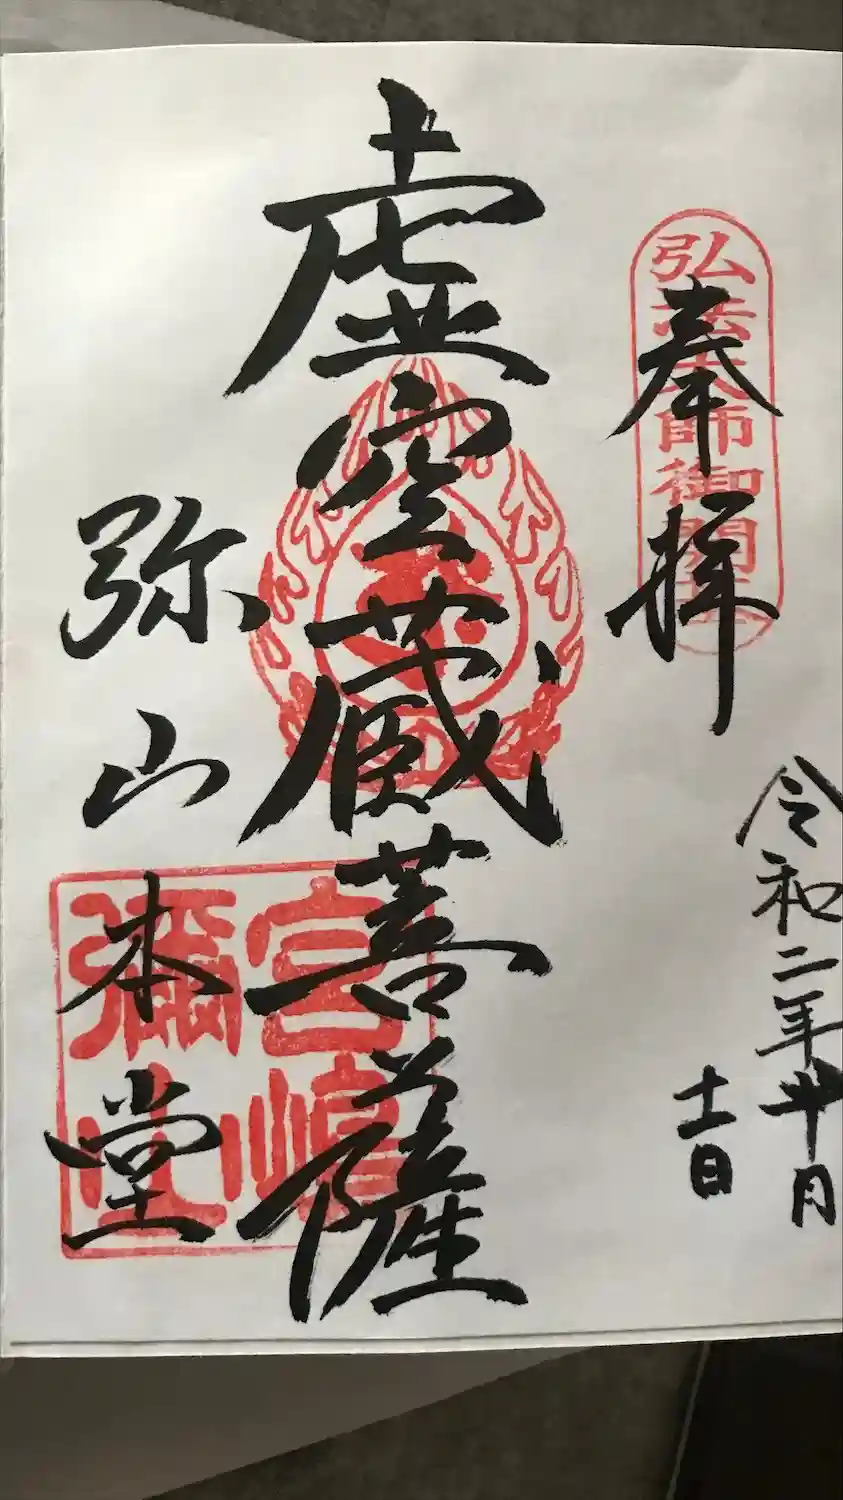 弘法大師御開基
奉拝
令和二年十月
十一日
虚空蔵菩薩
弥山本堂
宮嶋
彌山